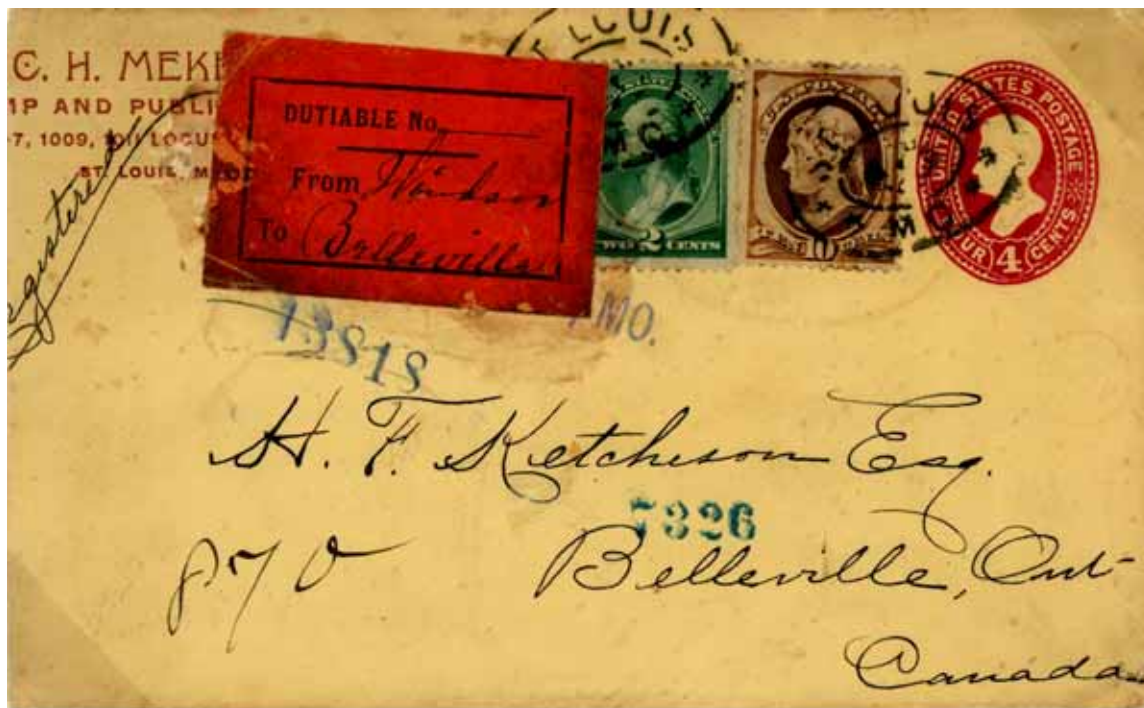 C. H. MEKE
MP AND PUBLI
-7, 1009, 1011 LOCUS
ST. LOUIS, MO
Registered
DUTIABLE No.
From Windsor
To Belleville
ST LOUIS
MO
TWO 2 CENTS
U.S. POSTAGE
10
LOUIS
MO
UNITED STATES POSTAGE
FOUR 4 CENTS
MO.
13818
H. F. Ketcheson Esq.
7326
Belleville, Ont
Canada